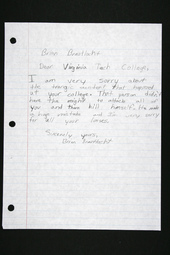 Brian
Dear Virginia Tech College,
I am very sorry about
the tragic incident that happened
at your college. That person didn't
have the right to attack all of
you and then kill himself. He made
a huge mistake and I'm very sorry
for all your losses.
Sincerely yours,
Brian